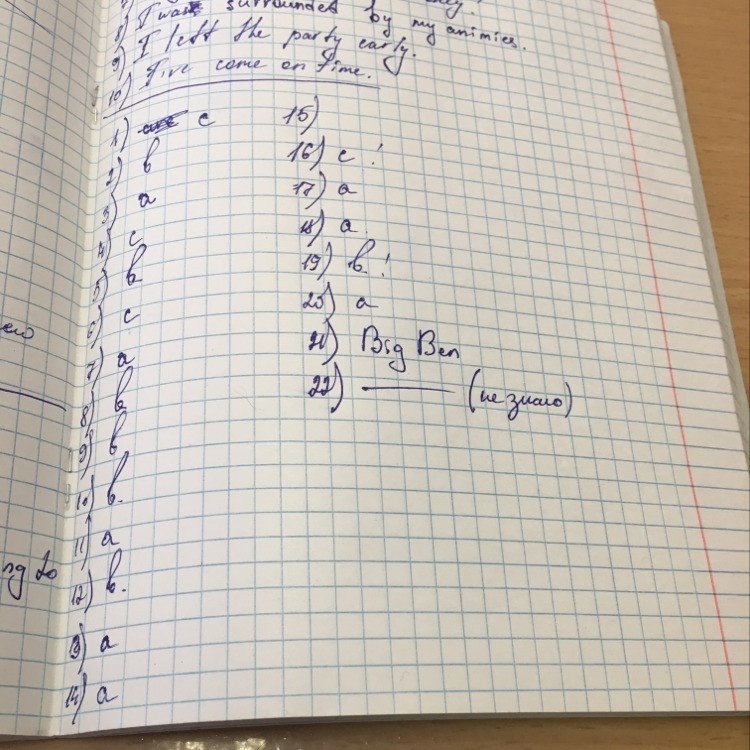 8) I was surrounded by my animies.
9) I left the party early.
10) I've come on time.
1) c
2) b
3) a
4) c
5) b
6) c
7) a
8) b
9) b
10) b.
11) a
12) b.
13) a
14) a
15)
16) c!
17) a
18) a.
19) b!
20) a
21) Big Ben
22) —— (не знаю)
ng to